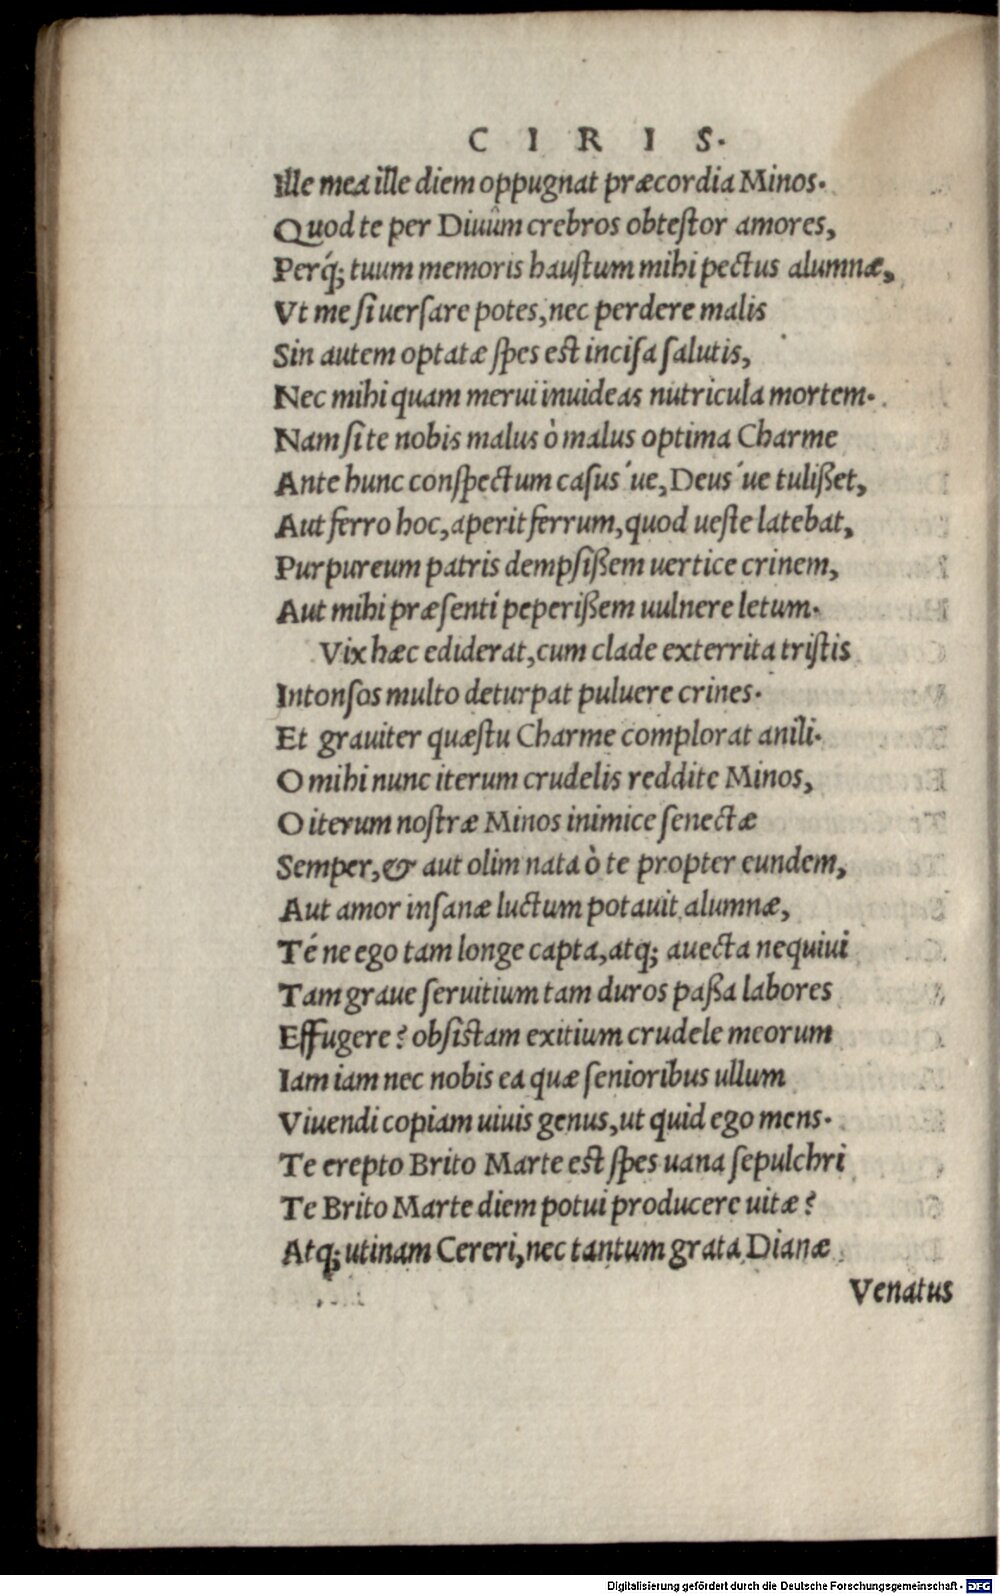 C I R I S.
Ille mea ille diem oppugnat præcordia Minos.
Quod te per Diuûm crebros obteſtor amores,
Perq́; tuum memoris hauſtum mihi pectus alumnæ,
Vt me ſi uerſare potes, nec perdere malis
Sin autem optatæ ſpes est inciſa ſalutis,
Nec mihi quam merui inuideas nutricula mortem.
Nam ſi te nobis malus ò malus optima Charme
Ante hunc conſpectum caſus´ue, Deus´ue tulißet,
Aut ferro hoc, aperit ferrum, quod ueſte latebat,
Purpureum patris dempſißem uertice crinem,
Aut mihi præſenti peperißem uulnere letum.
Vix hæc ediderat, cum clade exterrita triſtis
Intonſos multo deturpat puluere crines.
Et grauiter quæſtu Charme complorat anili.
O mihi nunc iterum crudelis reddite Minos,
O iterum noſtræ Minos inimice ſenectæ
Semper, & aut olim nata ò te propter eundem,
Aut amor inſanæ luctum potauit alumnæ,
Té ne ego tam longe capta, atq; auecta nequiui
Tam graue ſeruitium tam duros paßa labores
Effugere? obſistam exitium crudele meorum
Iam iam nec nobis ea quæ ſenioribus ullum
Viuendi copiam uiuis genus, ut quid ego mens.
Te erepto Brito Marte est ſpes uana ſepulchri
Te Brito Marte diem potui producere uitæ?
Atq; utinam Cereri, nec tantum grata Dianæ
Venatus
Digitalisierung gefördert durch die Deutsche Forschungsgemeinschaft - DFG